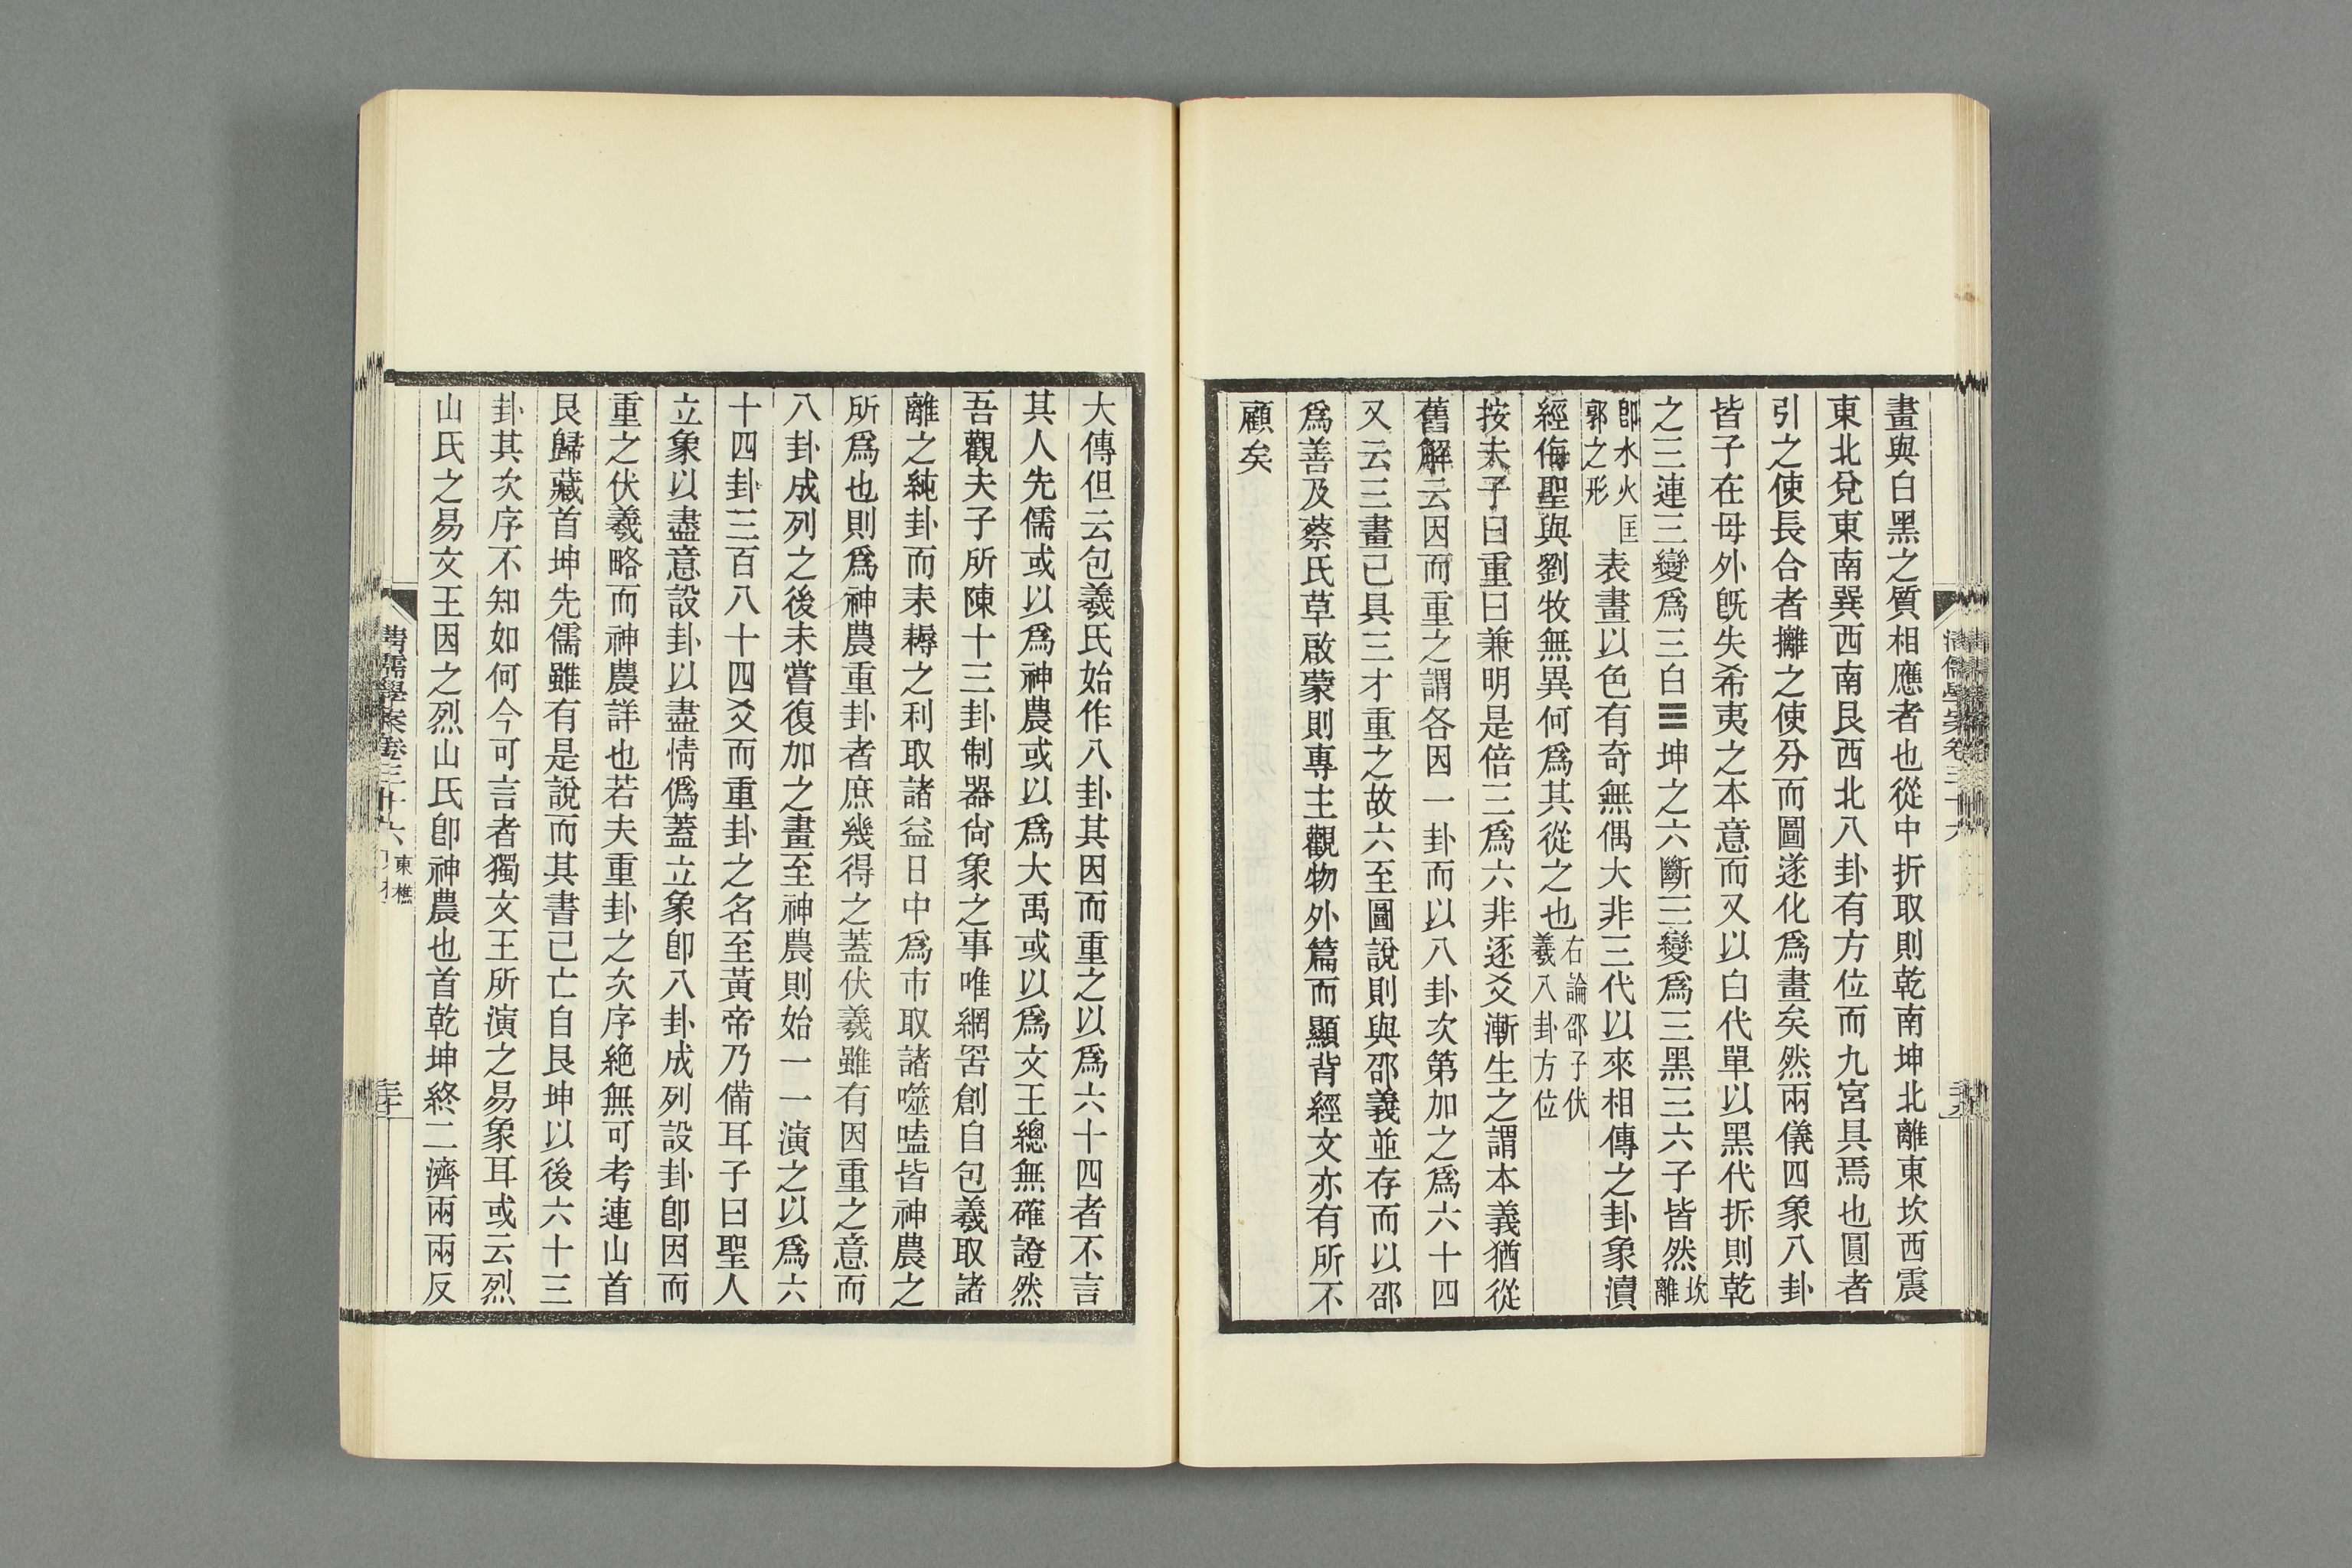 畫與白黑之質相應者也從中折取則乾南坤北離東坎西震
東北兌東南巽西南艮西北八卦有方位而九宮具焉也圓者
引之使長合者攡之使分而圖遂化爲畫矣然兩儀四象八卦
皆子在母外旣失希夷之本意而又以白代單以黑代拆則乾
之三連三變爲三白☰坤之六斷三變爲三黑三六子皆然坎離
卽水火匡郭之形表畫以色有奇無偶大非三代以來相傳之卦象瀆
經侮聖與劉牧無異何爲其從之也右論邵子伏羲八卦方位
按夫子曰重曰兼明是倍三爲六非逐爻漸生之謂本義猶從
舊解云因而重之謂各因一卦而以八卦次第加之爲六十四
又云三畫已具三才重之故六至圖說則與邵義並存而以邵
爲善及蔡氏草啟蒙則專主觀物外篇而顯背經文亦有所不
顧矣
大傳但云包羲氏始作八卦其因而重之以爲六十四者不言
其人先儒或以爲神農或以爲大禹或以爲文王總無確證然
吾觀夫子所陳十三卦制器尙象之事唯網罟創自包羲取諸
離之純卦而耒耨之利取諸益日中爲市取諸噬嗑皆神農之
所爲也則爲神農重卦者庶幾得之蓋伏羲雖有因重之意而
八卦成列之後未嘗復加之畫至神農則始一一演之以爲六
十四卦三百八十四爻而重卦之名至黃帝乃備耳子曰聖人
立象以盡意設卦以盡情僞蓋立象卽八卦成列設卦卽因而
重之伏羲略而神農詳也若夫重卦之次序絕無可考連山首
艮歸藏首坤先儒雖有是說而其書已亡自艮坤以後六十三
卦其次序不知如何今可言者獨文王所演之易象耳或云烈
山氏之易文王因之烈山氏卽神農也首乾坤終二濟兩兩反
清儒學案卷三十六 東樵